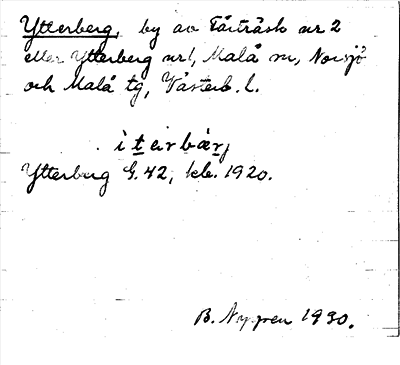 Ytterberg, by av Fårträsk nr 2
eller Ytterberg nr 1, Malå sn, Norsjö
och Malå tg, Västerb. l.
Ytterberg G.42, kb. 1920.
B. Nyren 1930.